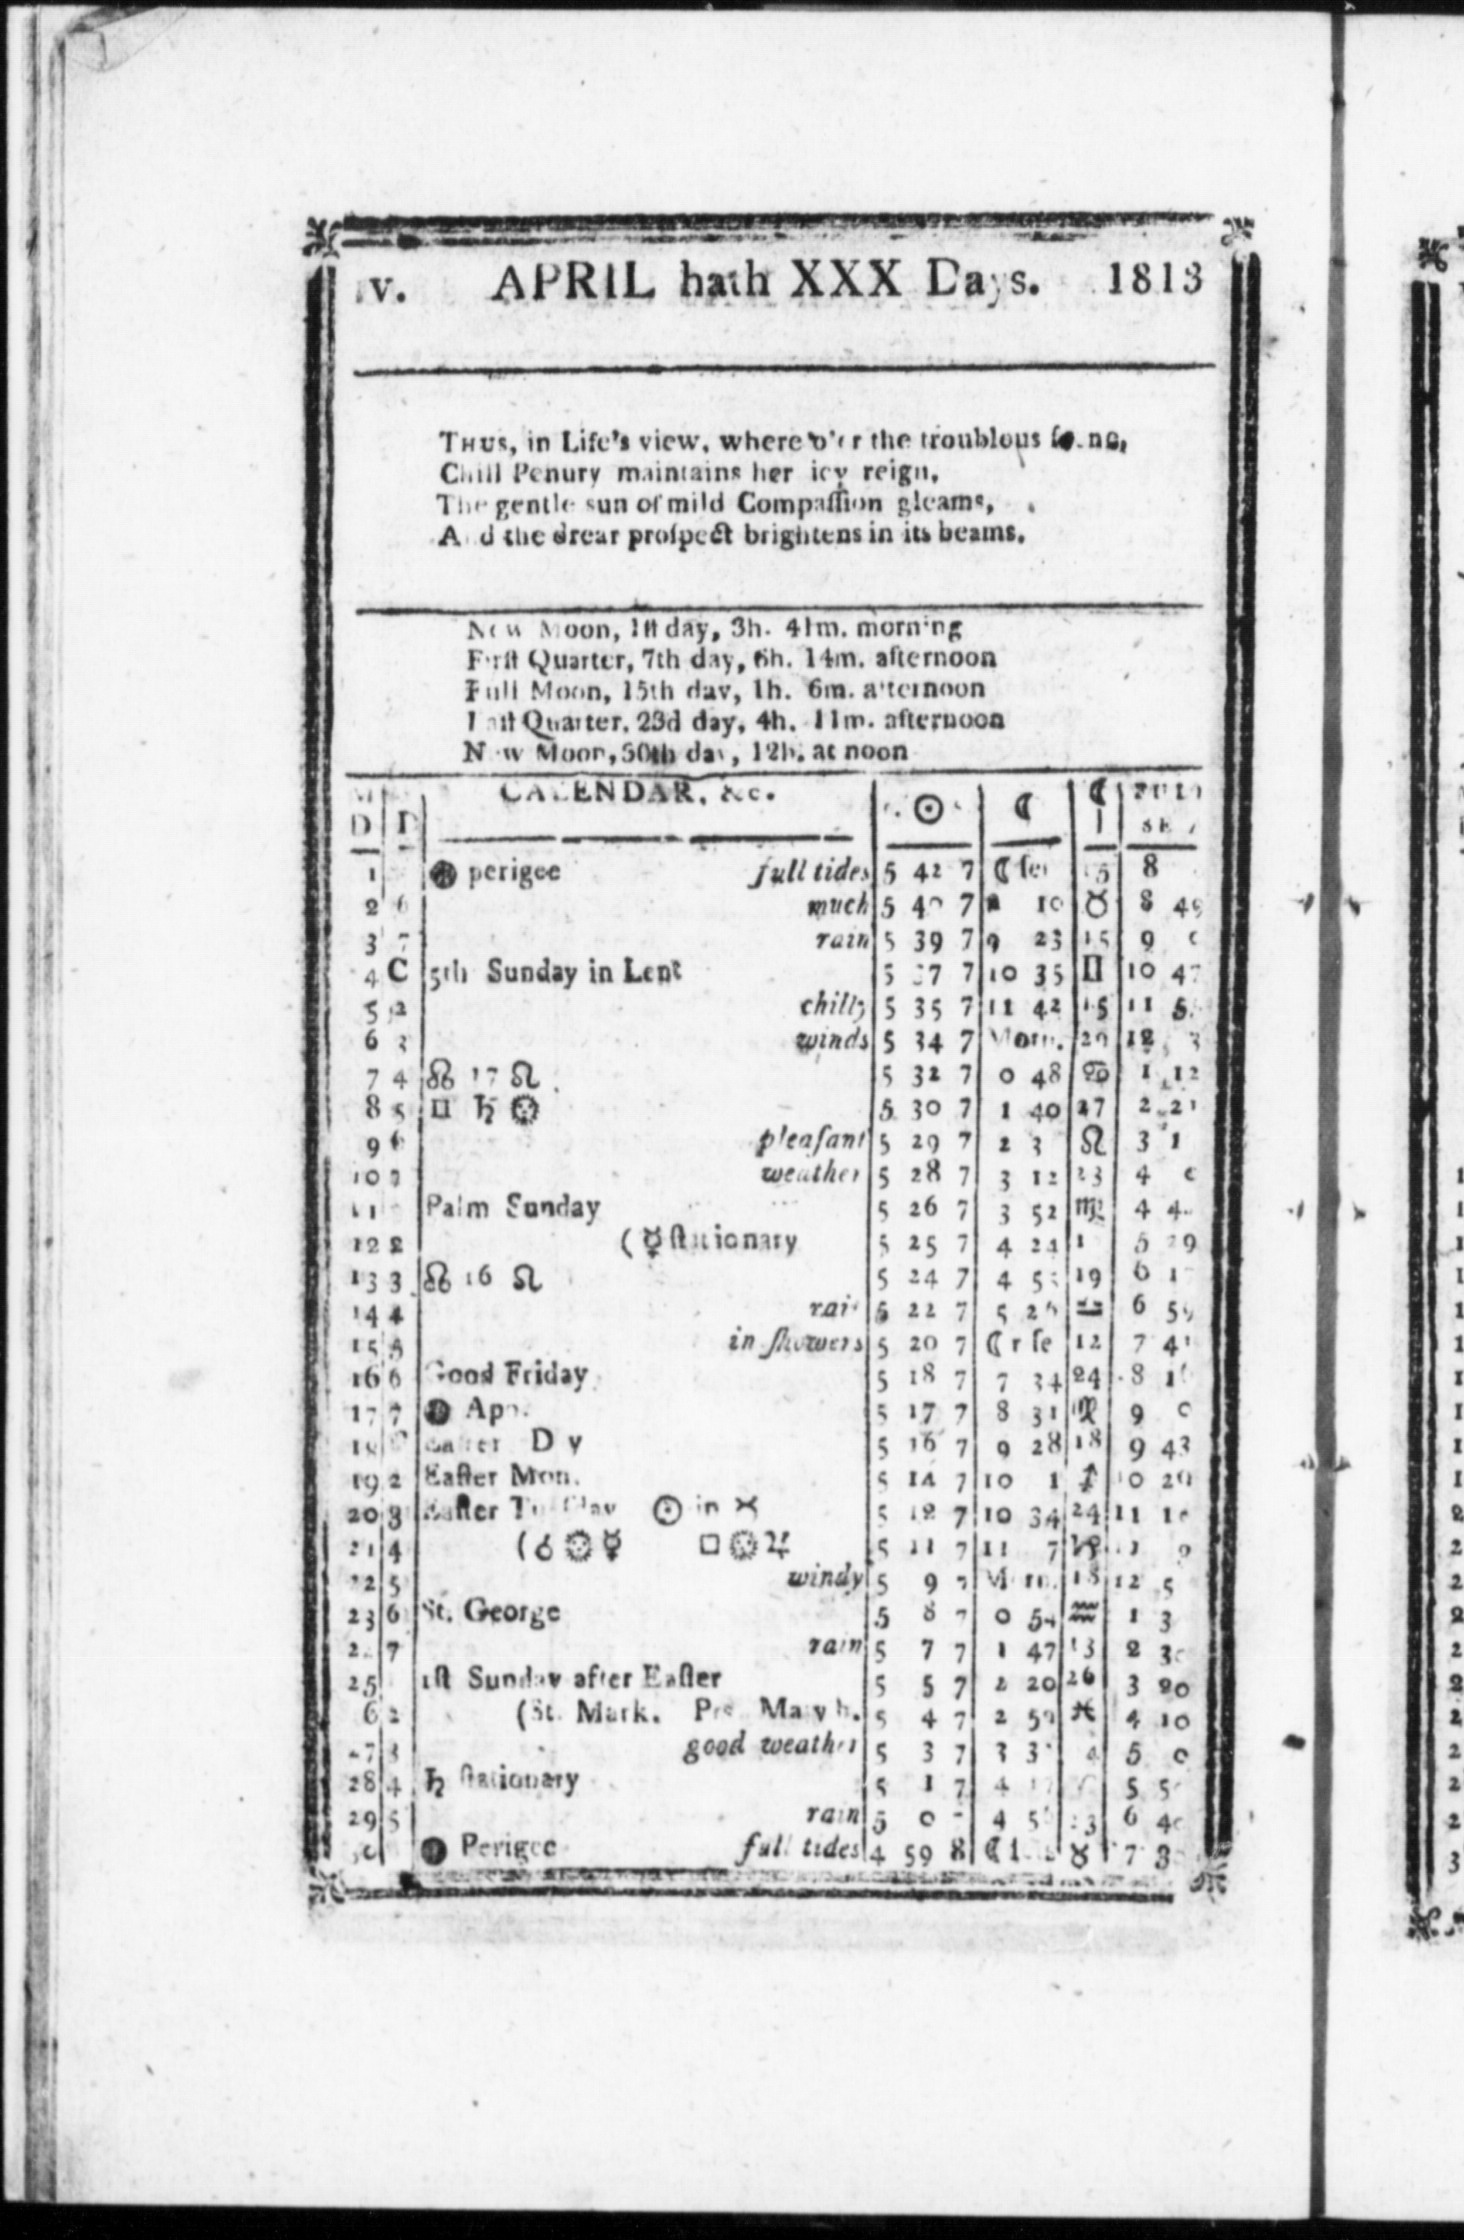 v. APRIL hath XXX Days. 1813
THUS, in Life's view, where o'er the troublous
Chill Penury maintains her icy reign,
The gentle sun of mild Compaſſion gleams,
And the drear proſpect brightens in its beams.
New Moon, 1ſt day, 3h. 41m. morning
Firſt Quarter, 7th day, 6h. 14m. afternoon
Full Moon, 15th day, 1h. 6m. afternoon
Laſt Quarter, 23d day, 4h. 11m. afternoon
New Moon, 30th day, 12h. at noon
M D CALENDAR, &c. ☉ ☾ ☾ FULL
D SEA
1 perigee full tides 5 42 7 ☾ ſet 8
2 6 much 5 40 7 10 ♉ 8 49
3 7 rain 5 39 7 9 23 15 9
4 C 5th Sunday in Lent 5 37 7 10 35 ♊ 10 47
5 2 chilly 5 35 7 11 42 15 11
6 3 winds 5 34 7 Morn. 29 12
7 4 ☊ 17 ♌ 5 32 7 0 48 ♋ 1 12
8 5 ♊ ♄ 5 30 7 1 40 27 2 21
9 6 pleaſant 5 29 7 2 3 ♌ 3 1
10 7 weather 5 28 7 3 12 23 4
11 Palm Sunday 5 26 7 3 52 ♍ 4
12 2 (☿ ſtationary 5 25 7 4 24 5 29
13 3 ☊ 16 ♌ 5 24 7 4 19 6
14 4 rain 5 22 7 5 26 ♎ 6 59
15 5 in ſhowers 5 20 7 ☾ riſe 12 7 41
16 6 Good Friday 5 18 7 7 34 24 8
17 7 Apo. 5 17 7 8 31 ♏ 9 0
18 C Eaſter Day 5 16 7 9 28 18 9 43
19 2 Eaſter Mon. 5 14 7 10 1 ♐ 10 20
20 3 Eaſter Tueſday ☉ in 5 12 7 10 34 24 11
21 4 (☌ ☿ □ ♃ 5 11 7 11 7 ♑
22 5 windy 5 9 7 Morn. 18 12 5
23 6 St. George 5 8 7 0 54 ♒ 1 3
24 7 rain 5 7 7 1 47 13 2
25 1ſt Sunday after Eaſter 5 5 7 2 20 26 3 20
26 2 (St. Mark. 5 4 7 2 59 ♓ 4 10
27 3 good weather 5 3 7 3 4 5 0
28 4 ♄ ſtationary 5 1 7 4 17 5
29 5 rain 5 0 7 4 6
30 Perigee full tides 4 59 8 ☾ ♉ 7